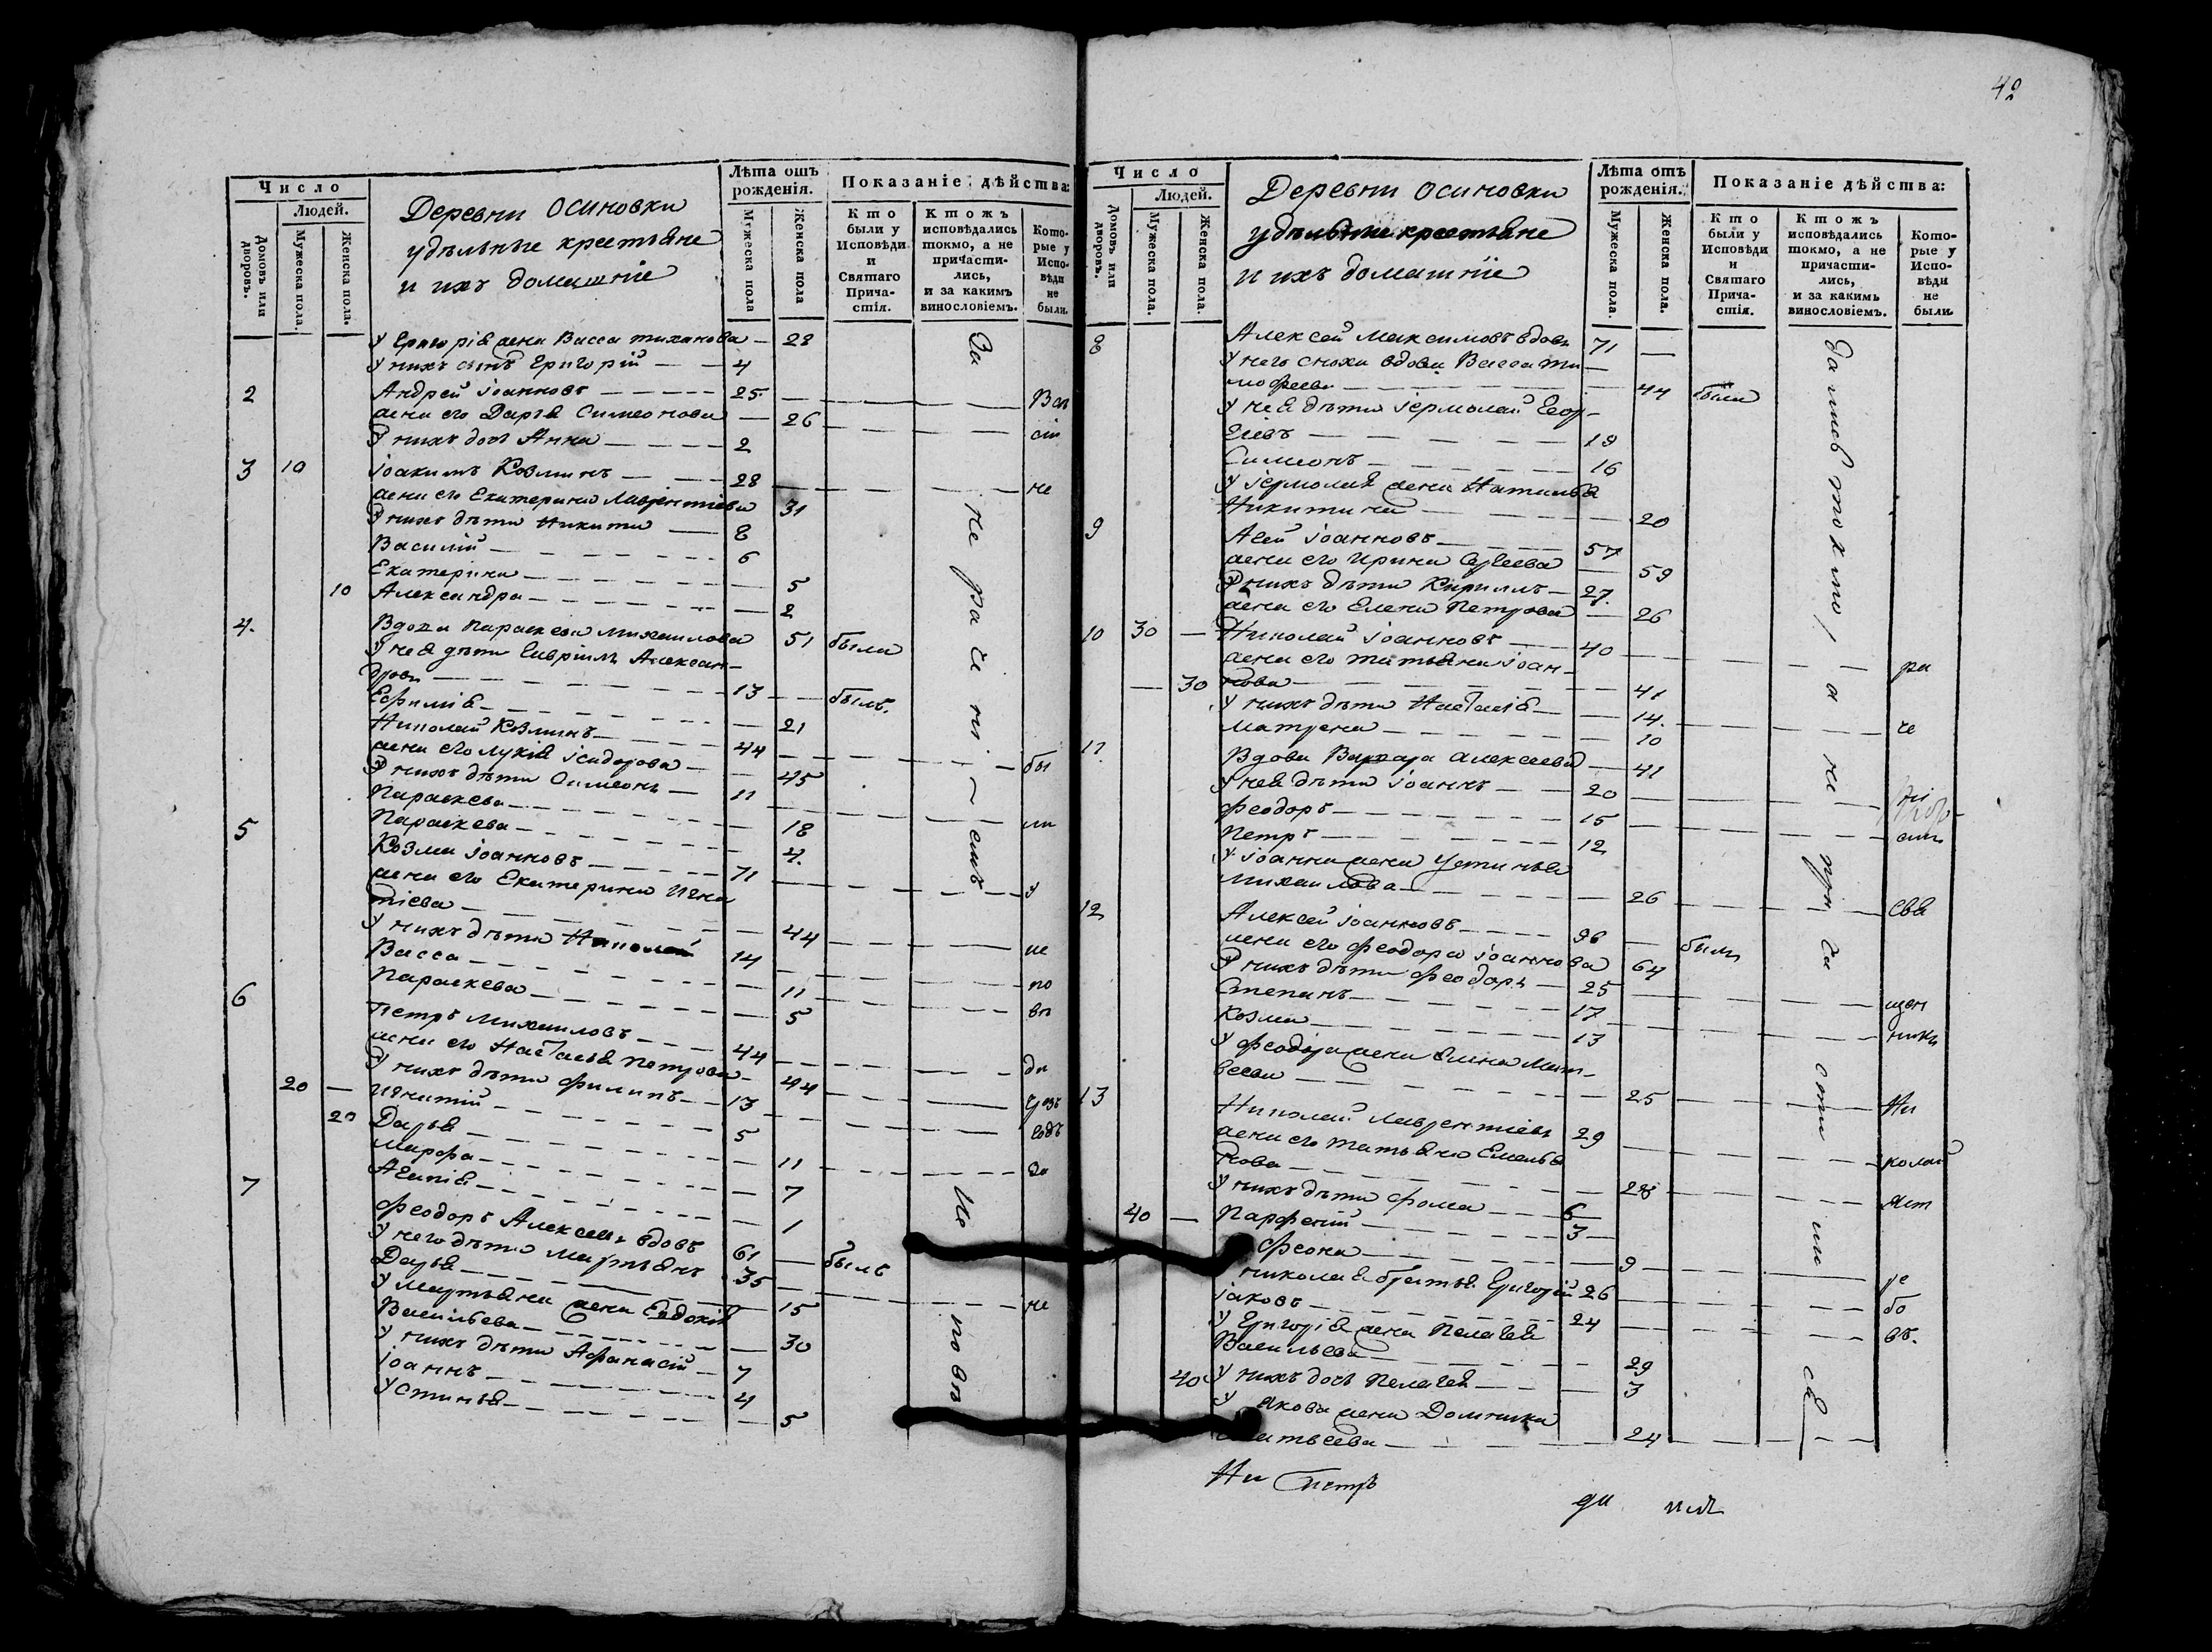 Число
Людей.
Домовъ или дворовъ.
Мужеска пола.
Женска пола.
Деревни Осиновки
удѣльные крестьяне
и ихъ домашніе
Лѣта отъ рожденія.
Мужеска пола
Женска пола
Показаніе дѣйства:
Кто были у Исповѣди и Святаго Причастія.
Ктожъ исповѣдались токмо, а не причастились, и за какимъ винословіемъ.
Которые у Исповѣди не были.
У Григорія жена Васса Тиханова — 28
У нихъ сынъ Григорій — 4
2 Андрей Іоанновъ — 25
жена его Дарья Симеонова — 26
У нихъ дочь Анна — 2
3 10 Іоакимъ Козминъ — 28 не
жена его Екатерина Лаврентіева 31
У нихъ дѣти Никита — 8
Василій — 6
Екатерина — 5
10 Александра — 2
4. Вдова Параскева Михаилова 51 были
У нея дѣти Гавріилъ Алексан-
дровъ — 13 — былъ.
Ефимія — 21
Николай Козминъ — 44
жена его Лукія Ісидорова — 45 бы
У нихъ дѣти Симеонъ — 11
Параскева — 18 ли
5 Параскева — 4.
Козма Іоанновъ — 71
жена его Екатерина Игна у
тіева — 44
У нихъ дѣти Николай 14 ис
Васса — 11 по
6 Параскева — 5 вѣ
Петръ Михаиловъ — 44
жена его Настасья Петрова — 44 ди
20 — У нихъ дѣти Филипъ — 13
20 Игнатій — 5
Дарья — 11
Марфа — 7
7 Агапія — 1
Феодоръ Алексеевъ вдовъ 61 — былъ
У него дѣти Мартьянъ 35
Дарья — 15 не
У Мартьяна жена Евдокія
Васильева — 30
У нихъ дѣти Афанасій — 7
Іоаннъ — 4
Устинья — 5
За не ра че ні емъ Не по вѣ
42
Число
Людей.
Домовъ или дворовъ.
Мужеска пола.
Женска пола.
Деревни Осиновки
удѣльные крестьяне
и ихъ домашніе
Лѣта отъ рожденія.
Мужеска пола.
Женска пола.
Показаніе дѣйства:
Кто были у Исповѣди и Святаго Причастія.
Ктожъ исповѣдались токмо, а не причастились, и за какимъ винословіемъ.
Которые у Исповѣди не были.
8 Алексей Максимовъ вдовъ 71 —
У него сноха вдова Васса Ти-
мофеева — 44 были
У нея дѣти Іермолай Геор-
гіевъ — 19
Симеонъ — 16
У Іермолая жена Наталья
Никитина — 20
9 Асей Іоанновъ — 57
жена его Ирина Сергеева — 59
У нихъ дѣти Кириллъ — 27.
жена его Елена Петрова — 26
10 30 — Николай Іоанновъ — 40
жена его Татьяна Іоан- ра
— 30 нова — 41
У нихъ дѣти Настасія — 14.
Матрена — 10
11. Вдова Варвара Алексеева — 41
У нея дѣти Іоаннъ — 20
Феодоръ — 15
Петръ — 12
У Іоанна жена Устинья
Михаилова — 26 свя
12 Алексей Іоанновъ — 96 — былъ
жена его Феодора Іоаннова 64
У нихъ дѣти Феодоръ — 25 щен
Степанъ — 17
Козма — 13 никъ
У Феодора жена Елена Мат-
веева — 25 Ни
13 Николай Лаврентіевъ 29 колай
жена его Татьяна Емелья
нова — 28
У нихъ дѣти Фома — 6
40 — Парфеній — 3
Феона — 9
Николая братья Григорій 26 бо
Іаковъ — 24 въ.
У Григорія жена Пелагея
Васильева — 29
40 У нихъ дочь Пелагея — 3
У Якова жена Домника
— 24
/ а не при ча сти ли ся